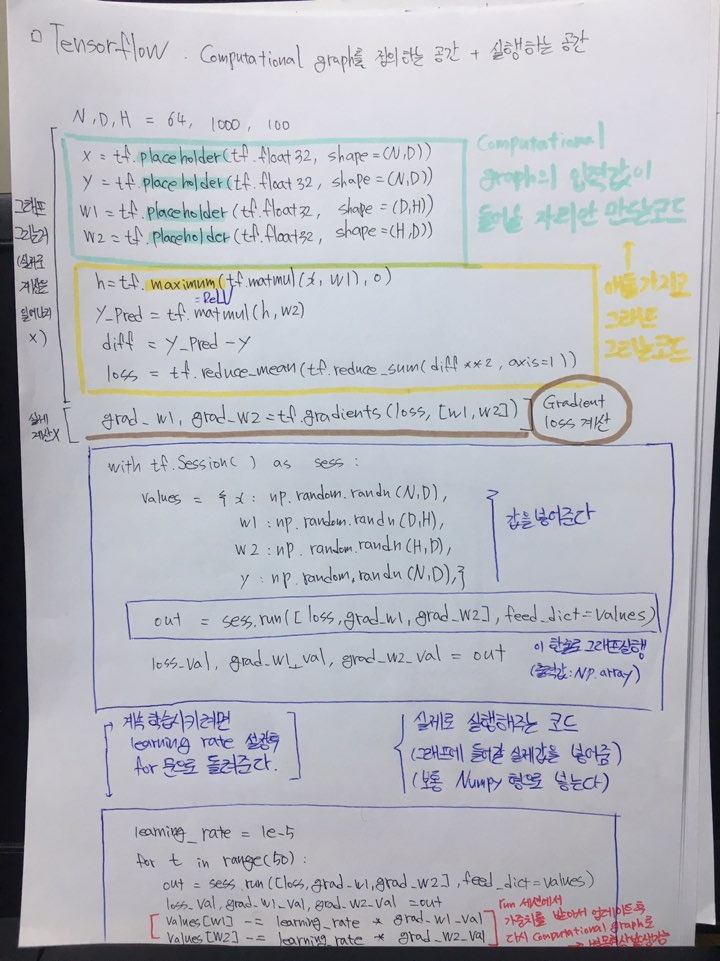 □ Tensorflow : Computational graph를 정의하는 공간 + 실행하는 공간
N,D,H = 64, 1000, 100
x = tf.placeholder(tf.float32, shape=(N,D))
y = tf.placeholder(tf.float32, shape=(N,D))
w1 = tf.placeholder(tf.float32, shape=(D,H))
w2 = tf.placeholder(tf.float32, shape=(H,D))
Computational
graph의 입력값이
들어올 자리만 만드는코드
그래프
그리는거
(실제로
계산은
일어나지
X)
h=tf.maximum(tf.matmul(x, w1), 0)
=ReLU
y_pred = tf.matmul(h,w2)
diff = y_pred-y
loss = tf.reduce_mean(tf.reduce_sum(diff**2, axis=1))
↑
얘들가지고
그래프
그리는코드
실제
계산X
grad_w1, grad_w2=tf.gradients(loss, [w1,w2])
Gradient
loss 계산
with tf.Session( ) as sess :
values = { x : np.random.randn(N,D),
w1 : np.random.randn(D,H),
w2 : np.random.randn(H,D),
y : np.random.randn(N,D),}
값을넣어준다
out = sess.run([loss,grad_w1,grad_w2], feed_dict=values)
loss_val, grad_w1_val, grad_w2_val = out
이 한줄로 그래프실행
(출력값:Np.array)
계속 학습시키려면
learning rate 설정후
for 문으로 돌려준다.
실제로 실행해주는 코드
(그래프에 들어갈 실제값을 넣어줌)
(보통 Numpy 형으로 넣는다)
learning_rate = 1e-5
for t in range(50) :
out = sess.run([loss,grad_w1,grad_w2], feed_dict=values)
loss_val, grad_w1_val, grad_w2_val =out
values[w1] -= learning_rate * grad_w1_val
values[w2] -= learning_rate * grad_w2_val
run 세션에서
가중치를 받아서 업데이트후
다시 computational graph로